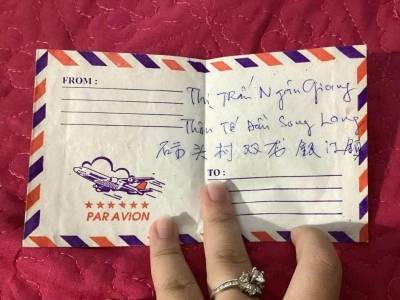 FROM :
Thị Trấn Ngân Giang
Thôn Tế Đầu Song Long
头村双龙银江镇
TO :
PAR AVION